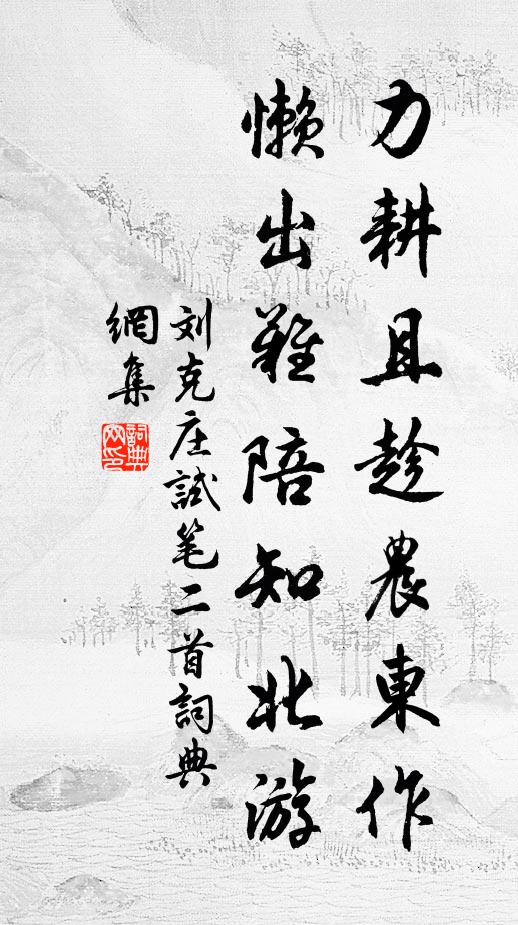 力耕且趁農東作
懒出難陪知北游
刘克庄試笔二首詞典
網集
詞典网印